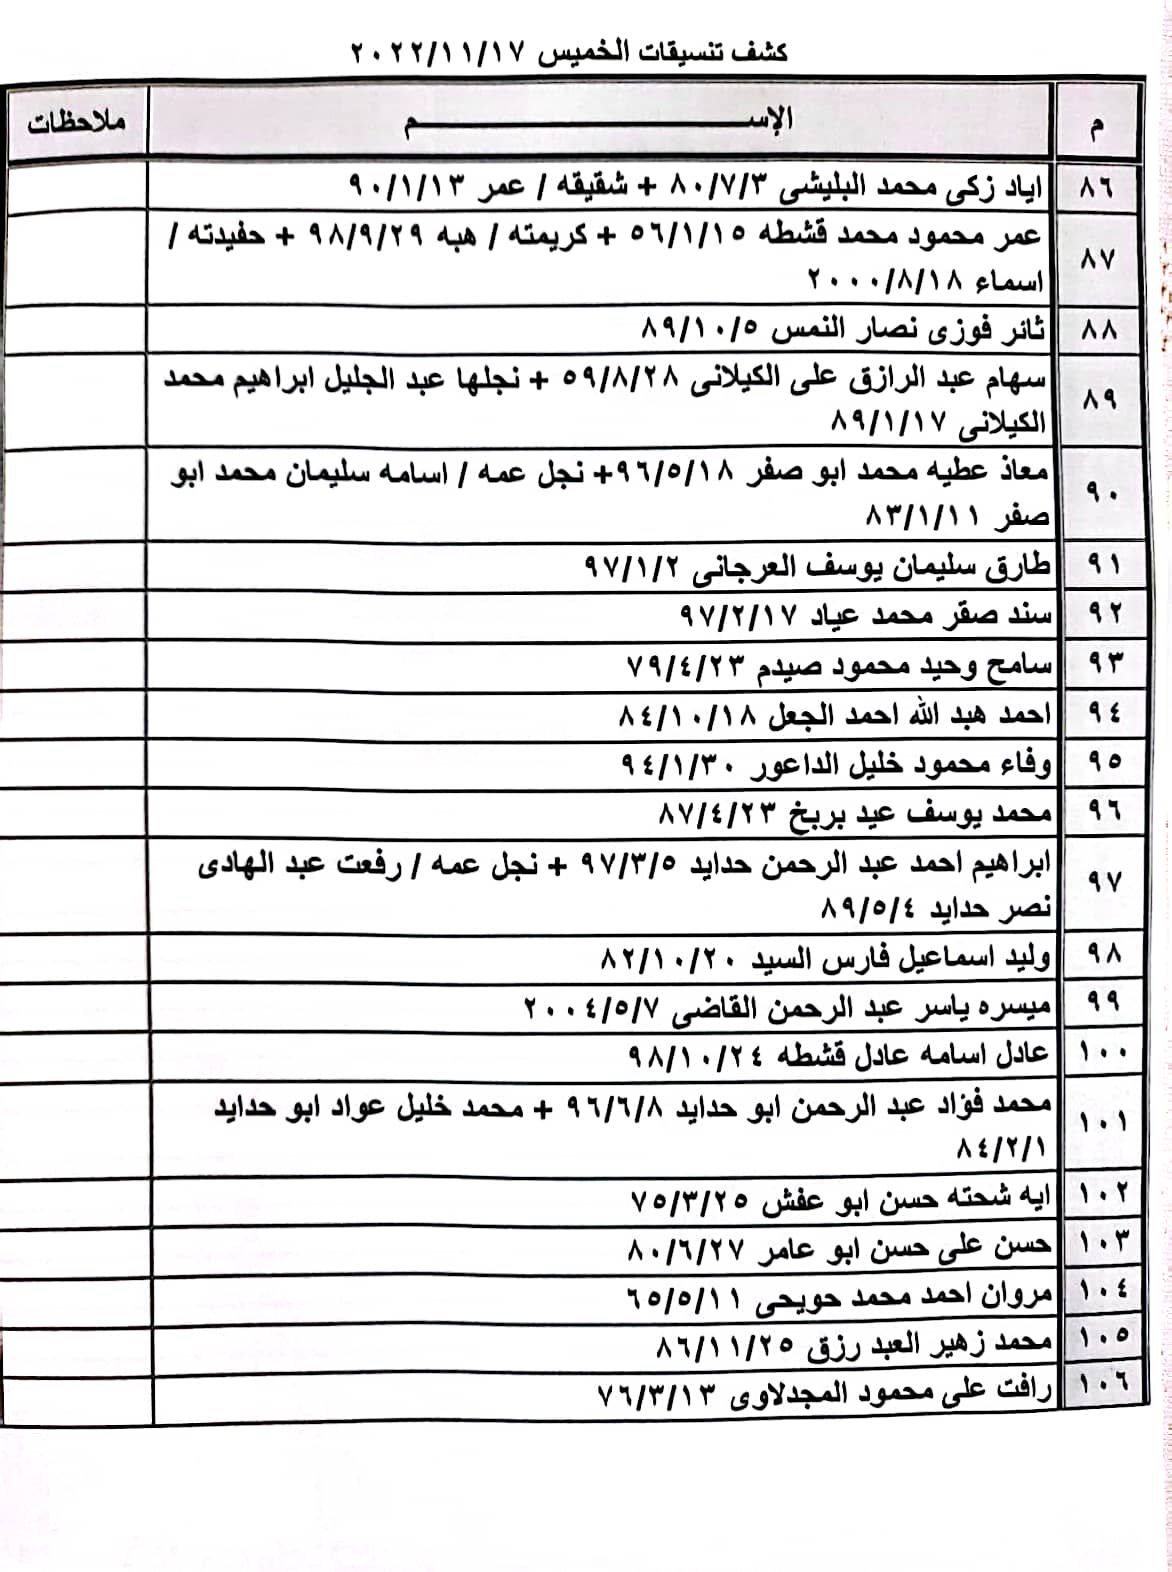 كشف تنسيقات الخميس ٢٠٢٢/١١/١٧
م الإســـــــــــم ملاحظات
٨٦ اياد زكى محمد البليشى ٨٠/٧/٣ + شقيقه / عمر ٩٠/١/١٣
٨٧ عمر محمود محمد قشطه ٥٦/١/١٥ + كريمته / هبه ٩٨/٩/٢٩ + حفيدته /
اسماء ٢٠٠٠/٨/١٨
٨٨ ثائر فوزى نصار النمس ٨٩/١٠/٥
٨٩ سهام عبد الرازق على الكيلانى ٥٩/٨/٢٨ + نجلها عبد الجليل ابراهيم محمد
الكيلانى ٨٩/١/١٧
٩٠ معاذ عطيه محمد ابو صفر ٩٦/٥/١٨+ نجل عمه / اسامه سليمان محمد ابو
صفر ٨٣/١/١١
٩١ طارق سليمان يوسف العرجانى ٩٧/١/٢
٩٢ سند صقر محمد عياد ٩٧/٢/١٧
٩٣ سامح وحيد محمود صيدم ٧٩/٤/٢٣
٩٤ احمد هبد الله احمد الجعل ٨٤/١٠/١٨
٩٥ وفاء محمود خليل الداعور ٩٤/١/٣٠
٩٦ محمد يوسف عيد بربخ ٨٧/٤/٢٣
٩٧ ابراهيم احمد عبد الرحمن حدايد ٩٧/٣/٥ + نجل عمه / رفعت عبد الهادى
نصر حدايد ٨٩/٥/٤
٩٨ وليد اسماعيل فارس السيد ٨٢/١٠/٢٠
٩٩ ميسره ياسر عبد الرحمن القاضى ٢٠٠٤/٥/٧
١٠٠ عادل اسامه عادل قشطه ٩٨/١٠/٢٤
١٠١ محمد فؤاد عبد الرحمن ابو حدايد ٩٦/٦/٨ + محمد خليل عواد ابو حدايد
٨٤/٢/١
١٠٢ ايه شحته حسن ابو عفش ٧٥/٣/٢٥
١٠٣ حسن على حسن ابو عامر ٨٠/٦/٢٧
١٠٤ مروان احمد محمد حويحى ٦٥/٥/١١
١٠٥ محمد زهير العبد رزق ٨٦/١١/٢٥
١٠٦ رافت على محمود المجدلاوى ٧٦/٣/١٣